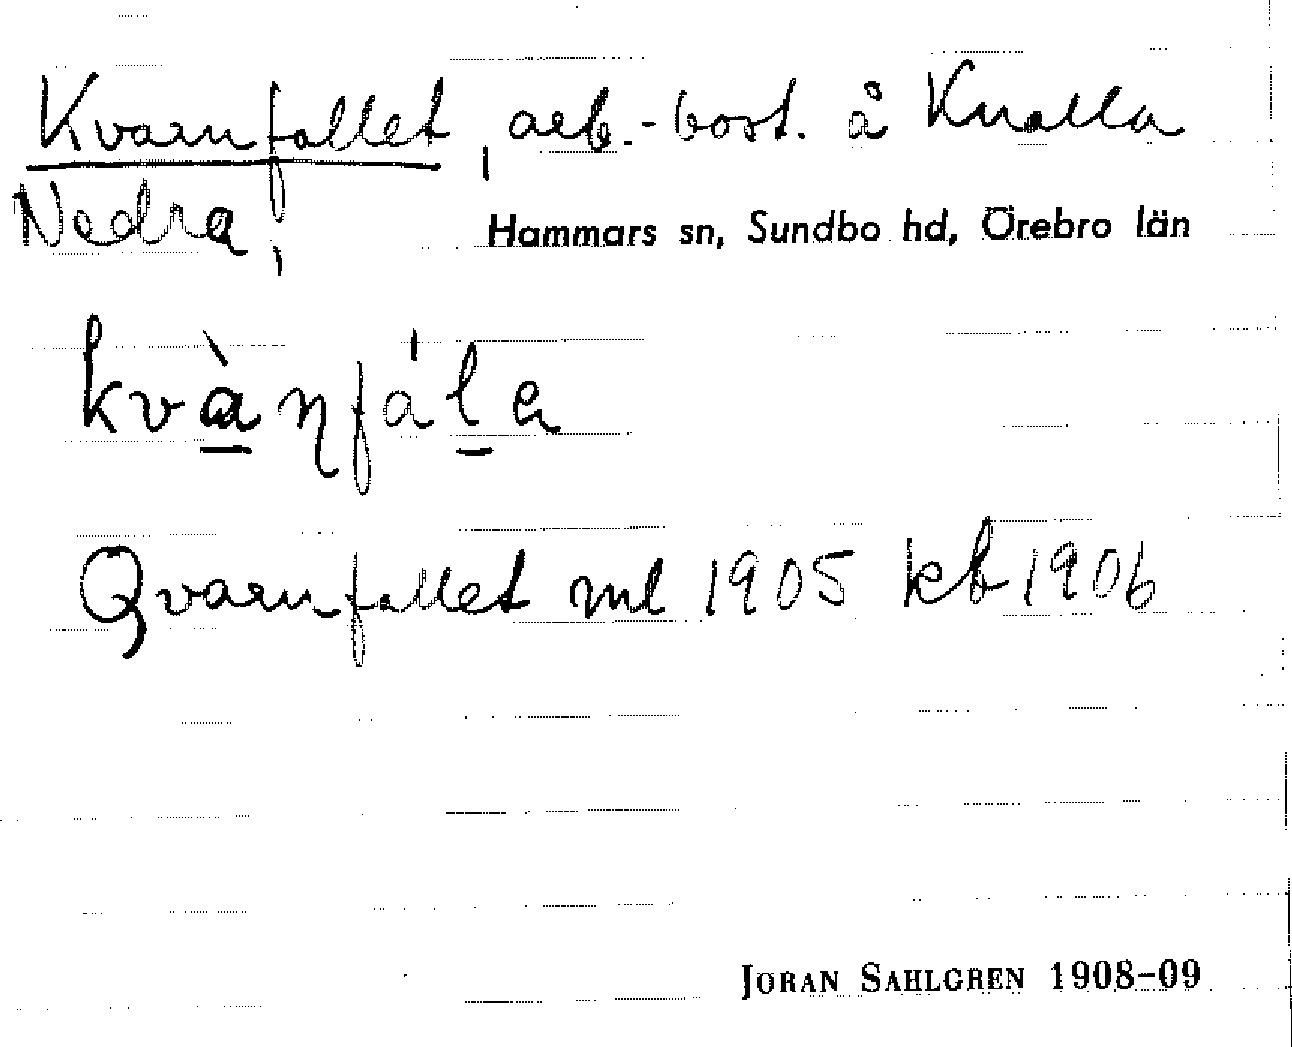 Kvarnfallet, arb.-bost. å Knalla
Nedra,
Hammars sn, Sundbo hd, Örebro län
kvànfála
Qvarnfallet ml 1905 kb 1906
JÖRAN SAHLGREN 1908-09